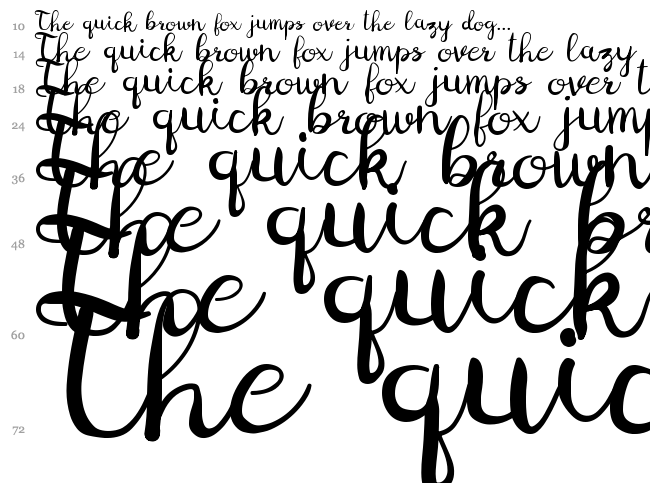 10 The quick brown fox jumps over the lazy dog...
14 The quick brown fox jumps over the lazy
18 The quick brown fox jumps over t
24 The quick brown fox jump
36 The quick brown
48 The quick br
60 The quick
72 The quic